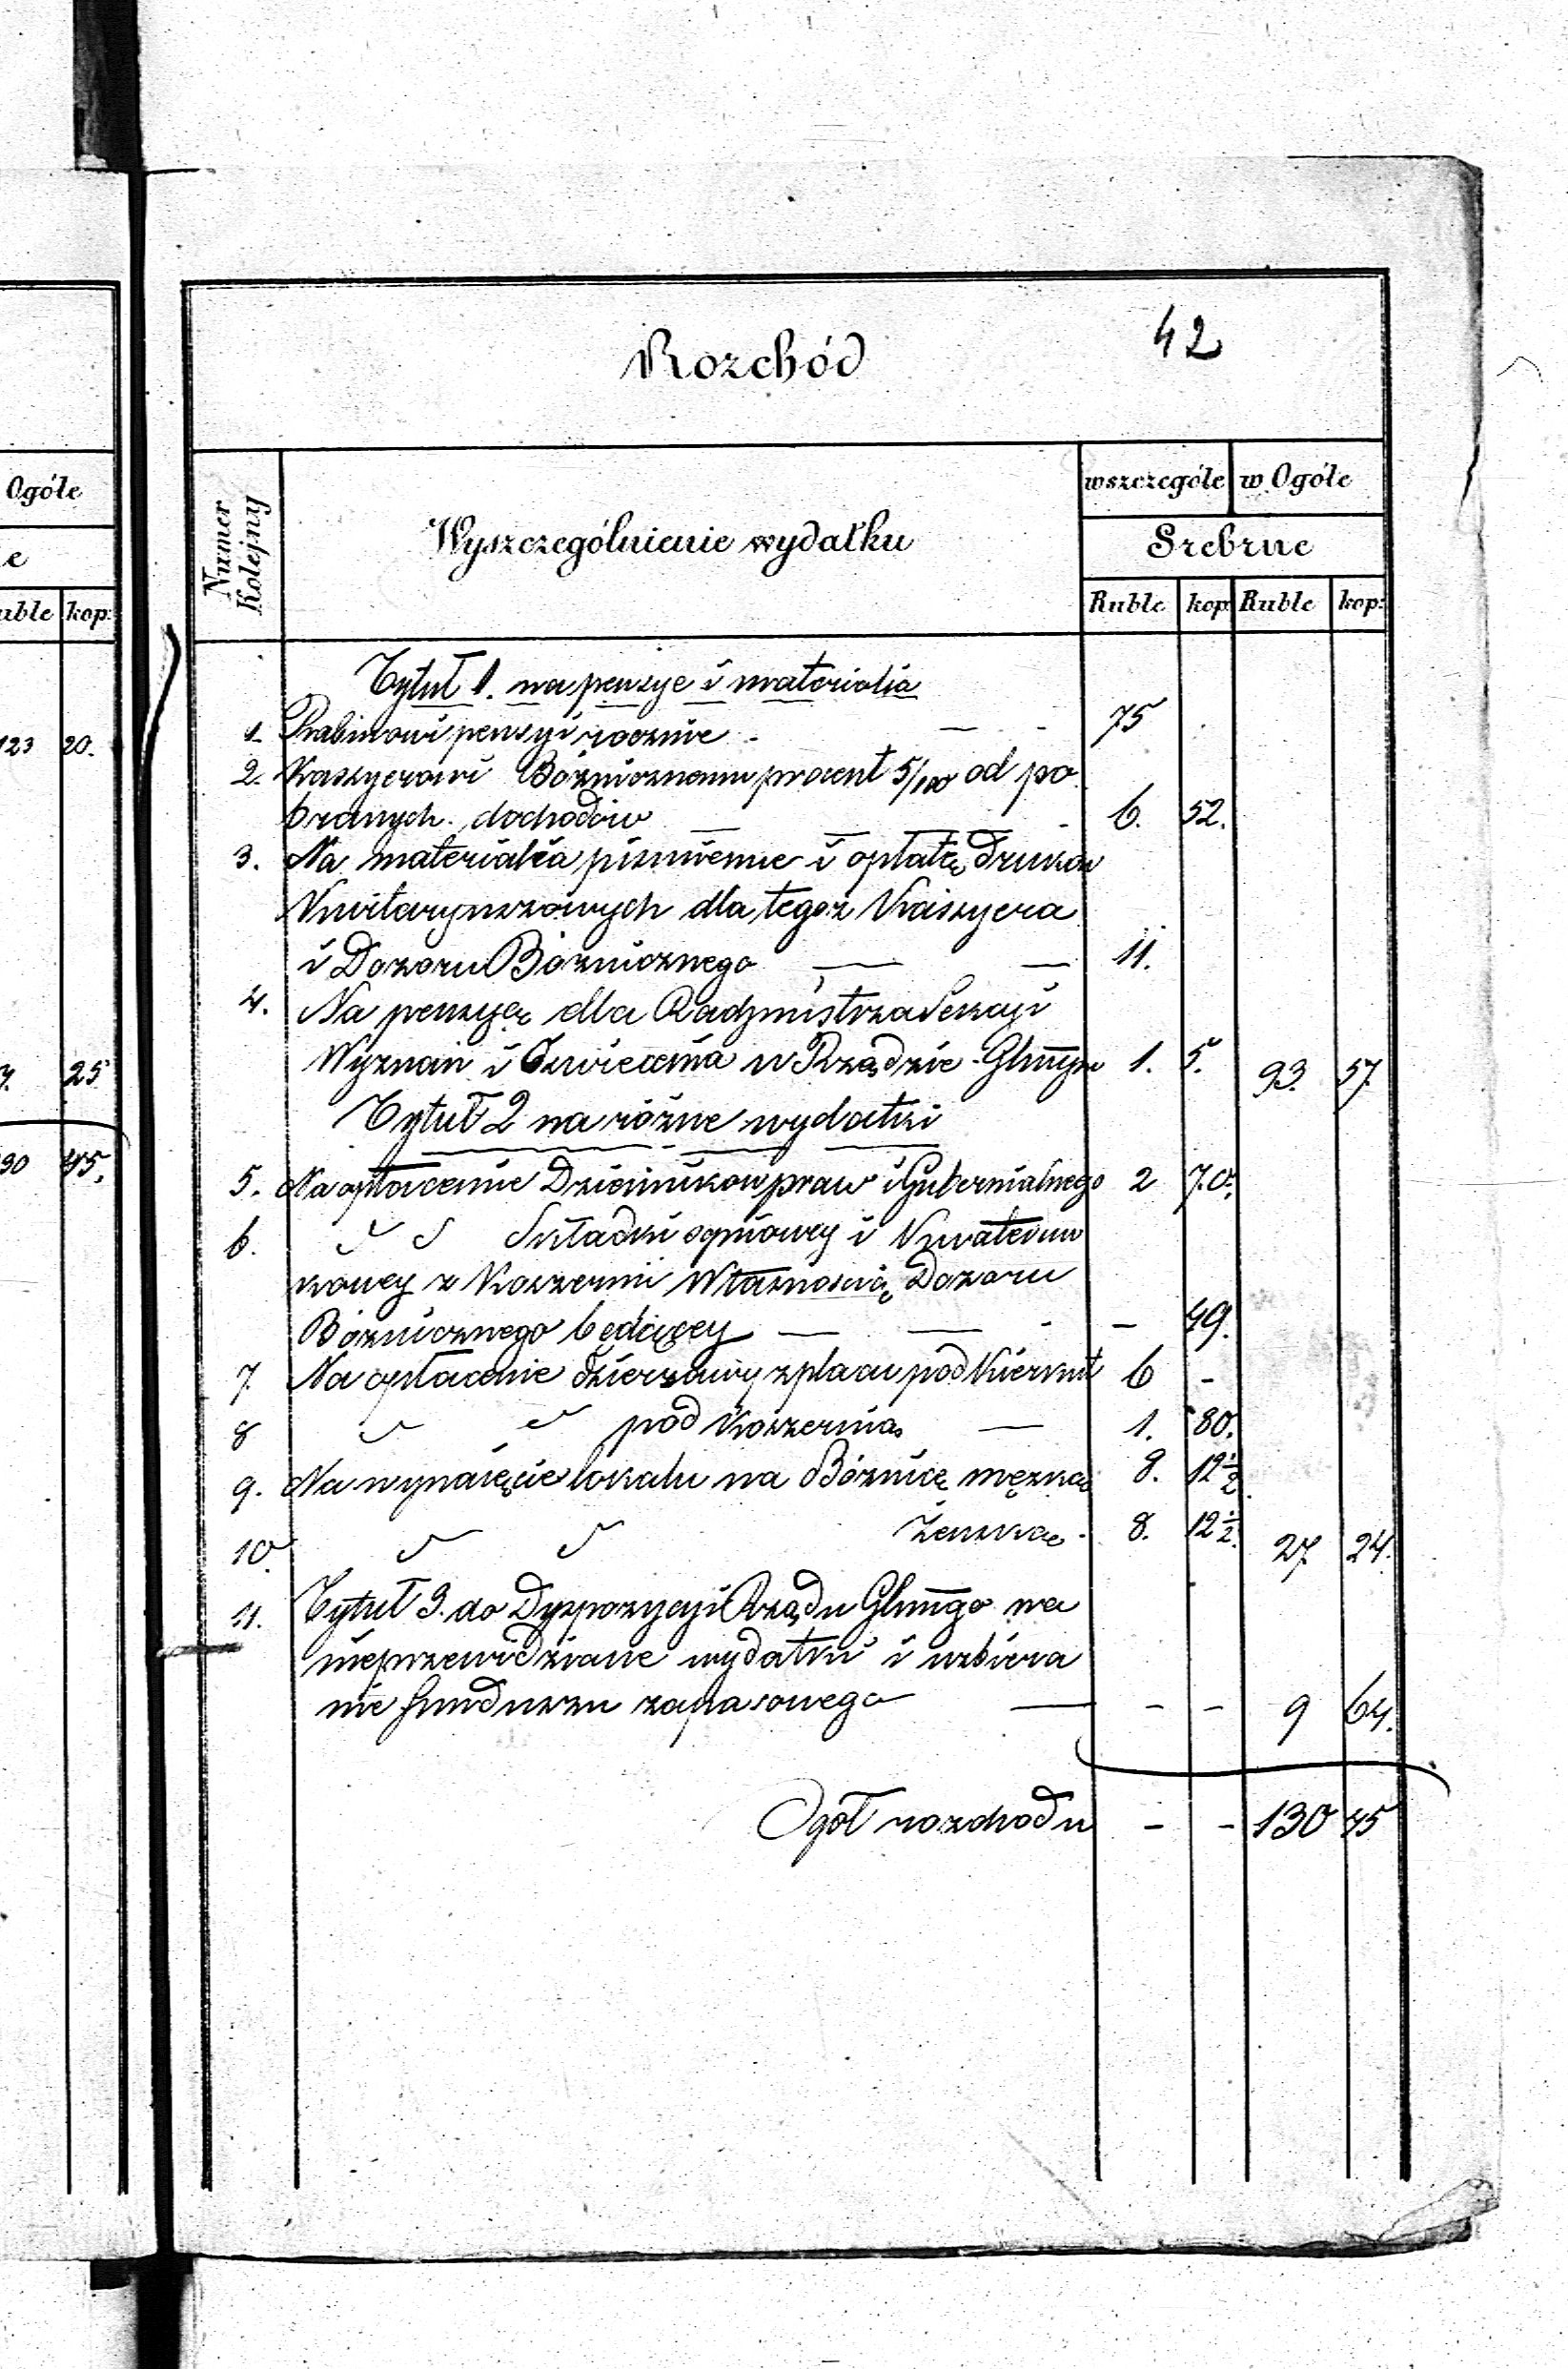 Ogóle
e
uble kop:
123 20.
7. 25
30 45.
Rozchód 42
Numer Kolejny
Wyszczególnienie wydatku
wszczególe w Ogóle
Srebrne
Ruble kop Ruble kop:
Tytuł 1. na pensye i materialia
1. Rabinowi pensyi rocznie - — - 75
2. Kassyerowi Bóżnicznemu procent 5/100 od po
branych dochodów — — — - 6. 52.
3. Na materialia piśmienne i opłatę druków
Kwitaryuszowych dla tegoż Kassyera
i Dozoru Bóżnicznego — — 11.
4. Na pensyę dla Rachmistrza Sekcyi
Wyznań i Oświecenia w Rządzie Glnym 1. 5. 93. 57.
Tytuł 2 na różne wydatki
5. Na opłacenie Dzienników praw i Gubernialnego 2 70.
6. " " Składki ogniowey i Kwaterun
kowey z Koszerni Własnością Dozoru
Bóżnicznego będącey — — - - 49.
7. Na opłacenie dzierżawy z placu pod Kierkut 6 -
8 " " pod Koszernią — 1. 80.
9. Na wynaięcie lokalu na Bóżnicę męzką 8. 12½
10. " " Żeńską - 8. 12½. 27. 24.
11. Tytuł 3. do Dyspozycyi Rządu Glnngo na
nieprzewidziane wydatki i uzbiera
nie funduszu zapasowego — - - 9 64.
Ogół rozchodu - - 130 45